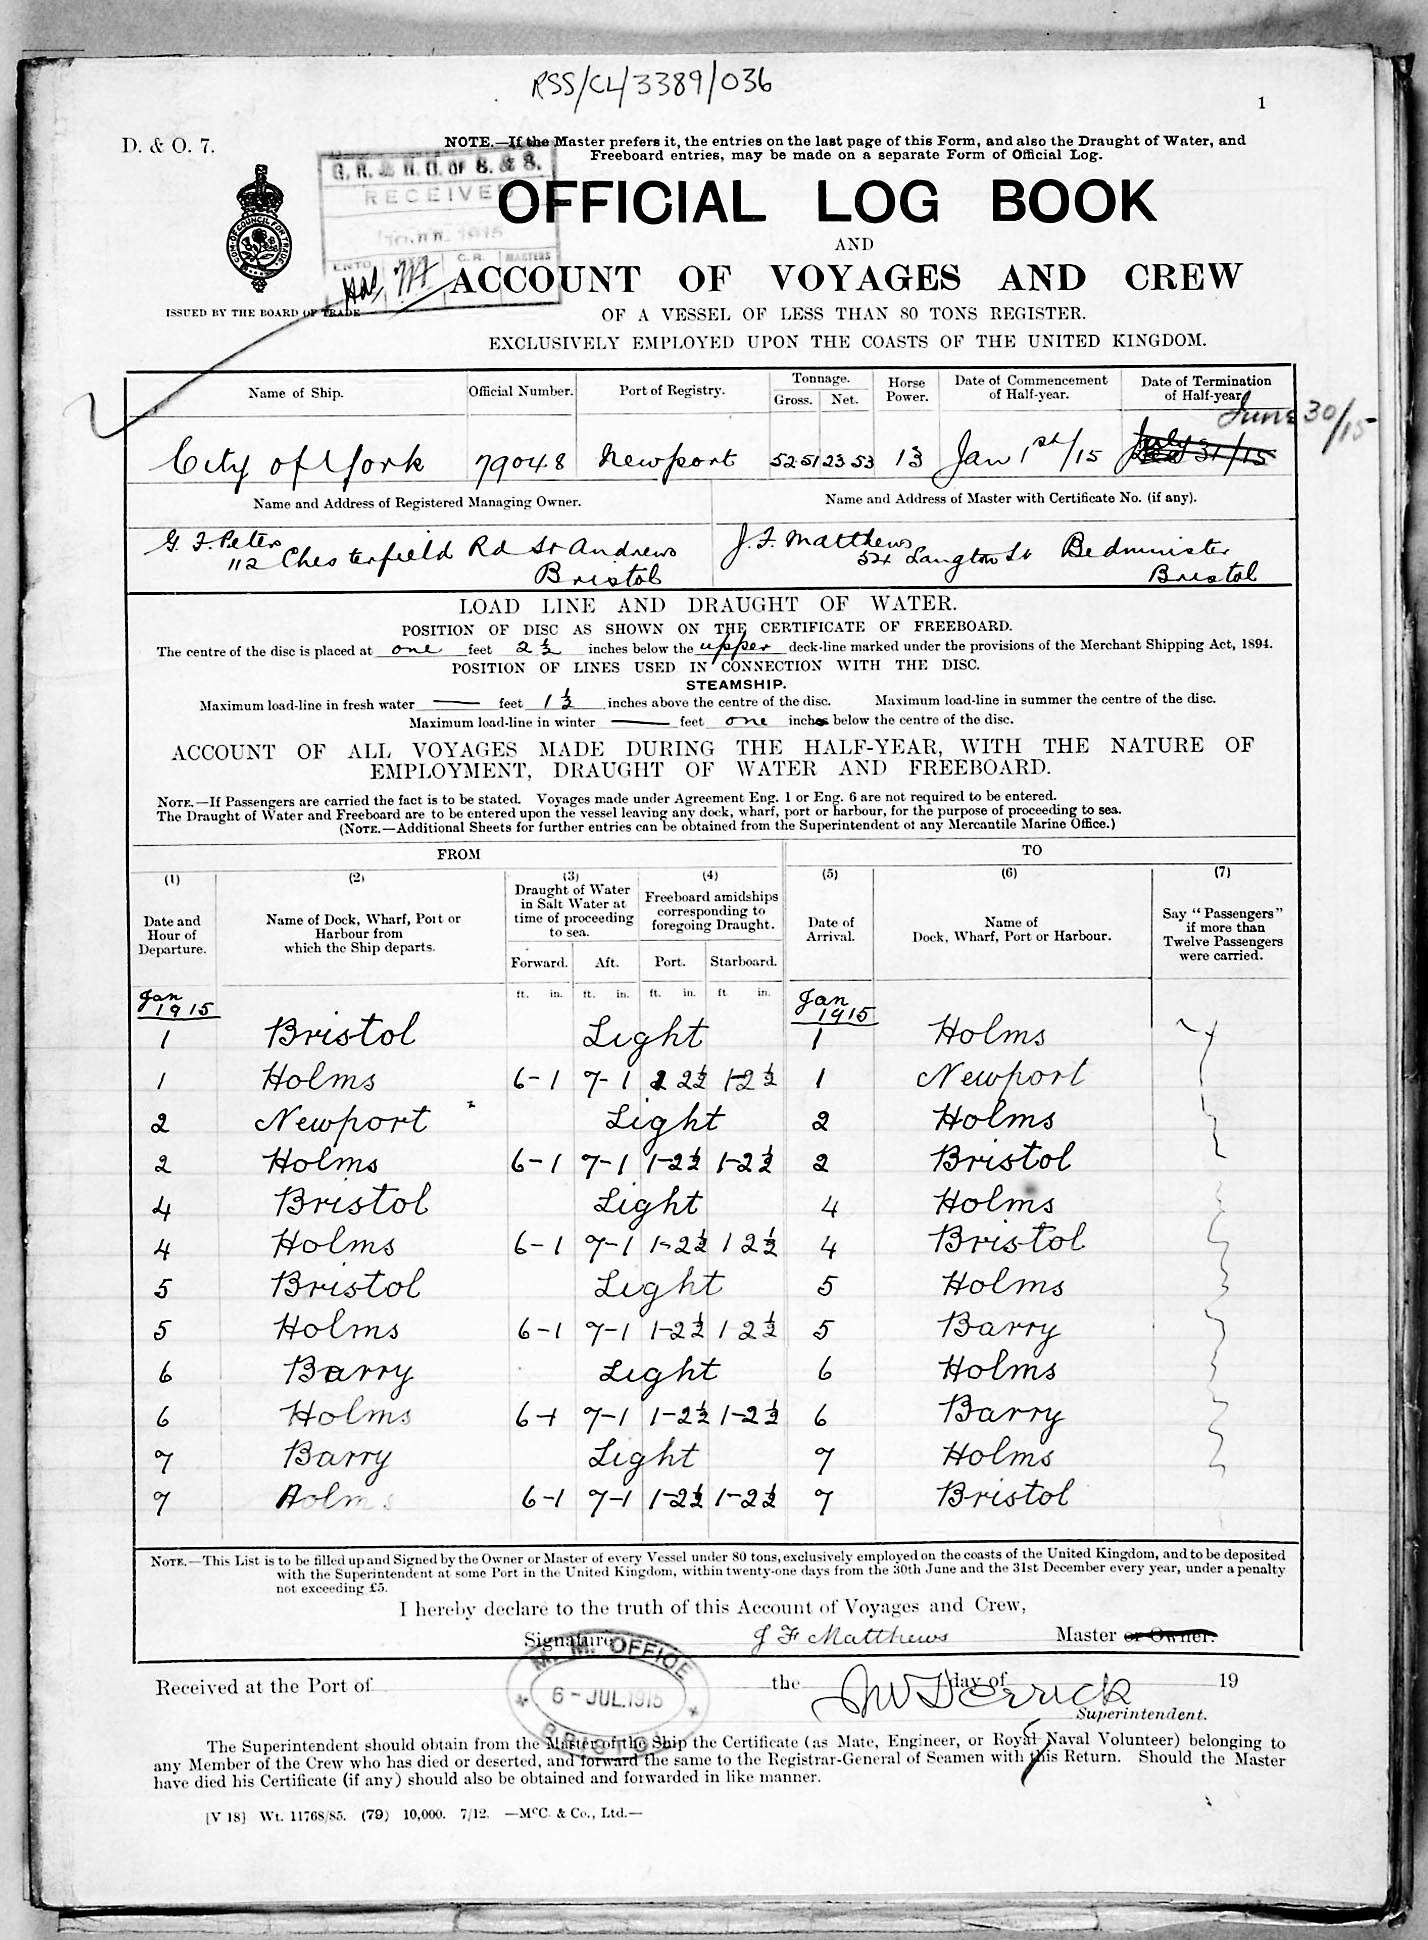 RSS/CL/3389/036
1
D. & O. 7.
NOTE.—If the Master prefers it, the entries on the last page of this Form, and also the Draught of Water, and
Freeboard entries, may be made on a separate Form of Official Log.
G. R. & R. O. OF S. & S.
RECEIVED
1915
C.R. MASTERS
COM. OF COUNCIL FOR TRADE
OFFICIAL LOG BOOK
AND
ACCOUNT OF VOYAGES AND CREW
ISSUED BY THE BOARD OF TRADE
OF A VESSEL OF LESS THAN 80 TONS REGISTER.
EXCLUSIVELY EMPLOYED UPON THE COASTS OF THE UNITED KINGDOM.
Name of Ship. Official Number. Port of Registry. Tonnage. Gross. Net. Horse Power. Date of Commencement of Half-year. Date of Termination of Half-year.
June 30/15
City of York 79048 Newport 52.51 23 53 13 Jan 1st/15 31/15
Name and Address of Registered Managing Owner. Name and Address of Master with Certificate No. (if any).
G. F. Peters J. F. Matthews
112 Chesterfield Rd St Andrews 52 Langton St Bedminister
Bristol Bristol
LOAD LINE AND DRAUGHT OF WATER.
POSITION OF DISC AS SHOWN ON THE CERTIFICATE OF FREEBOARD.
The centre of the disc is placed at one feet 2½ inches below the upper deck-line marked under the provisions of the Merchant Shipping Act, 1894.
POSITION OF LINES USED IN CONNECTION WITH THE DISC.
STEAMSHIP.
Maximum load-line in fresh water — feet 1½ inches above the centre of the disc. Maximum load-line in summer the centre of the disc.
Maximum load-line in winter — feet one inches below the centre of the disc.
ACCOUNT OF ALL VOYAGES MADE DURING THE HALF-YEAR, WITH THE NATURE OF
EMPLOYMENT, DRAUGHT OF WATER AND FREEBOARD.
NOTE.—If Passengers are carried the fact is to be stated. Voyages made under Agreement Eng. 1 or Eng. 6 are not required to be entered.
The Draught of Water and Freeboard are to be entered upon the vessel leaving any dock, wharf, port or harbour, for the purpose of proceeding to sea.
(NOTE.—Additional Sheets for further entries can be obtained from the Superintendent of any Mercantile Marine Office.)
FROM TO
(1) (2) (3) (4) (5) (6) (7)
Date and Hour of Departure. Name of Dock, Wharf, Port or Harbour from which the Ship departs. Draught of Water in Salt Water at time of proceeding to sea. Freeboard amidships corresponding to foregoing Draught. Date of Arrival. Name of Dock, Wharf, Port or Harbour. Say "Passengers" if more than Twelve Passengers were carried.
Forward. Aft. Port. Starboard.
ft. in. ft. in. ft. in. ft. in.
Jan 1915 Jan 1915
1 Bristol Light 1 Holms
1 Holms 6-1 7-1 1 2½ 1-2½ 1 Newport
2 Newport Light 2 Holms
2 Holms 6-1 7-1 1-2½ 1-2½ 2 Bristol
4 Bristol Light 4 Holms
4 Holms 6-1 7-1 1-2½ 1 2½ 4 Bristol
5 Bristol Light 5 Holms
5 Holms 6-1 7-1 1-2½ 1 2½ 5 Barry
6 Barry Light 6 Holms
6 Holms 6-1 7-1 1-2½ 1-2½ 6 Barry
7 Barry Light 7 Holms
7 Holms 6-1 7-1 1-2½ 1-2½ 7 Bristol
NOTE.—This List is to be filled up and Signed by the Owner or Master of every Vessel under 80 tons, exclusively employed on the coasts of the United Kingdom, and to be deposited
with the Superintendent at some Port in the United Kingdom, within twenty-one days from the 30th June and the 31st December every year, under a penalty
not exceeding £5.
I hereby declare to the truth of this Account of Voyages and Crew,
Signature J F Matthews Master or Owner.
M. M. OFFICE
6 - JUL.1915
BRISTOL
Received at the Port of the day of 19
Derrick
Superintendent.
The Superintendent should obtain from the Master of the Ship the Certificate (as Mate, Engineer, or Royal Naval Volunteer) belonging to
any Member of the Crew who has died or deserted, and forward the same to the Registrar-General of Seamen with this Return. Should the Master
have died his Certificate (if any) should also be obtained and forwarded in like manner.
[V 18] Wt. 11768/85. (79) 10,000. 7/12. —McC. & Co., Ltd.—